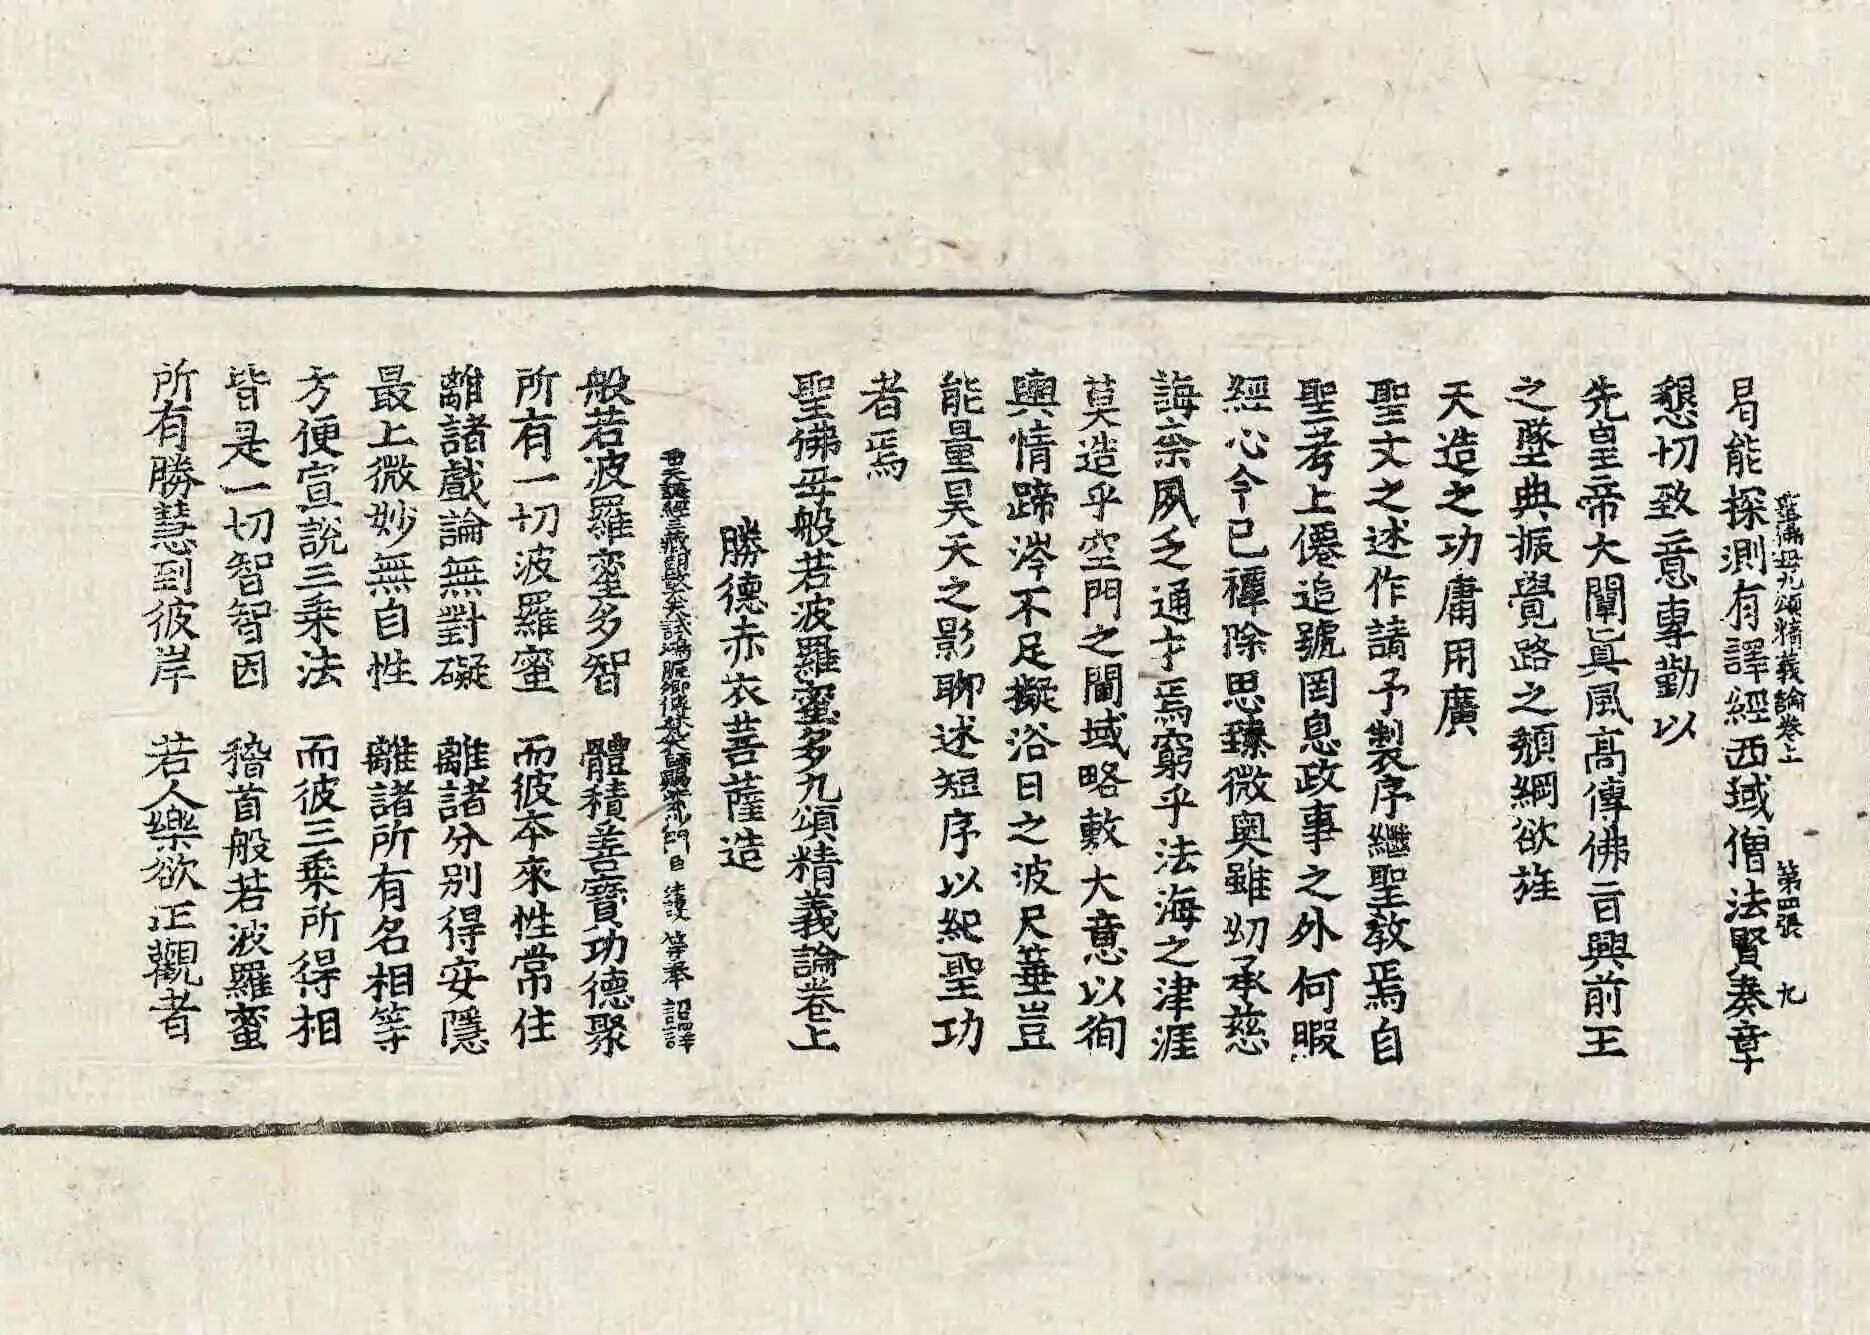 聖佛母九頌精義論卷上 第四張 九
曷能探測有譯經西域僧法賢奏章
懇切致意專勤以
先皇帝大闡眞風高傳佛旨興前王
之墜典振覺路之頹綱欲旌
天造之功庸用廣
聖文之述作請予製序繼聖教焉自
聖考上僊追號罔息政事之外何暇
經心今已禫除思臻微奧雖幼承慈
誨柰夙乏通才焉窮乎法海之津涯
莫造乎空門之閫域略敷大意以徇
輿情蹄涔不足擬浴日之波尺箠豈
能量昊天之影聊述短序以紀聖功
者焉
聖佛母般若波羅蜜多九頌精義論卷上
勝德赤衣菩薩造
西天譯經三藏朝奉大夫試鴻臚卿傳梵大師賜紫沙門臣法護等奉 詔譯
般若波羅蜜多智 體積善寶功德聚
所有一切波羅蜜 而彼本來性常住
離諸戲論無對礙 離諸分別得安隱
最上微妙無自性 離諸所有名相等
方便宣說三乘法 而彼三乘所得相
皆是一切智智因 稽首般若波羅蜜
所有勝慧到彼岸 若人樂欲正觀者